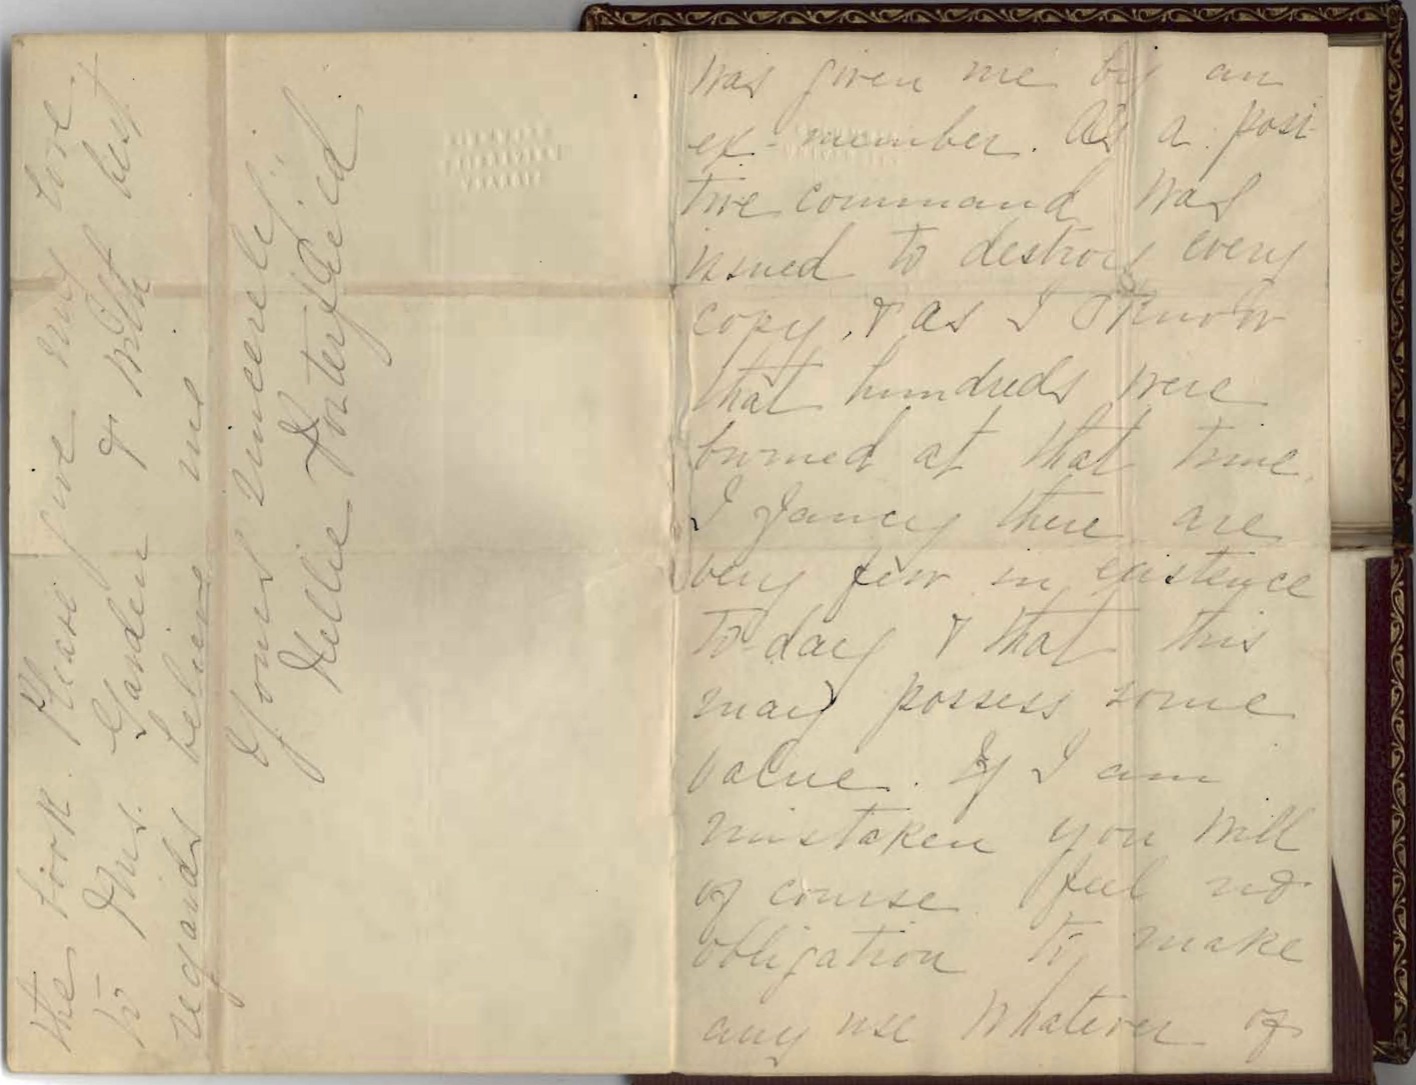 was given me by an
ex-member. As a posi
tive command was
issued to destroy every
copy, & as I know
that hundreds were
burned at that time.
I fancy there are
very few in existence
to-day & that this
may possess some
value. If I am
mistaken you will
of course feel no
obligation to make
any use whatever of
the book. Please give my love
to Mrs. Garden & with best
regards believe me
Yours sincerely
Nellie Porterfield